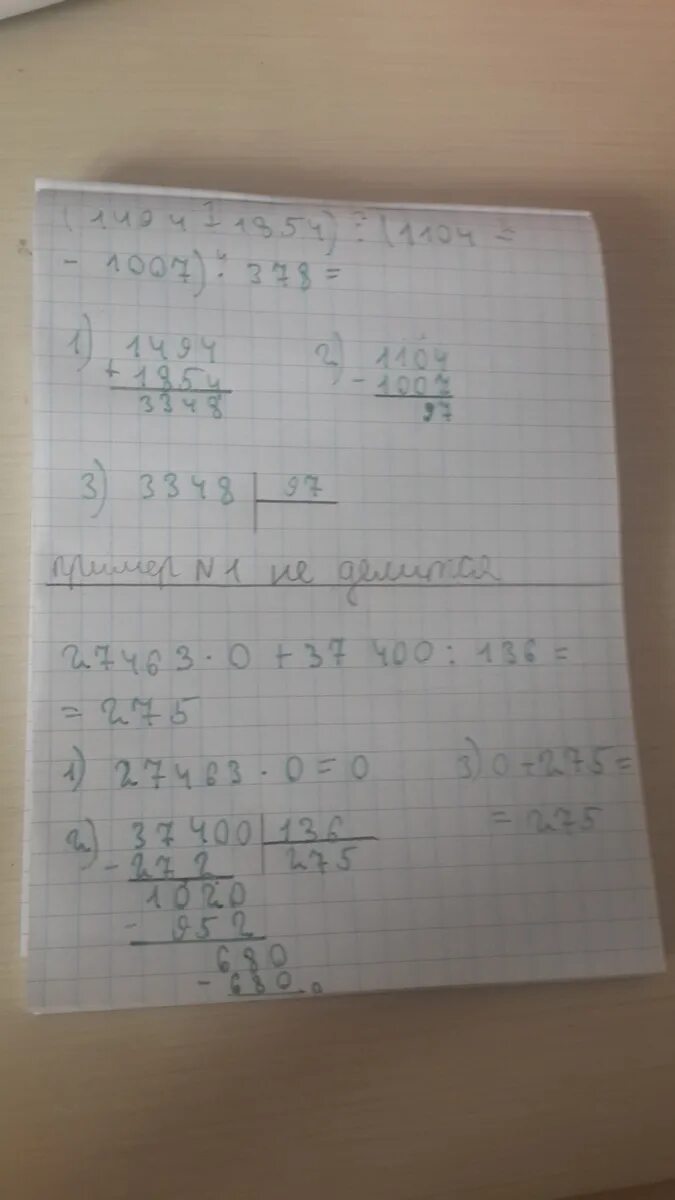 (1494 + 1854) : (1104 =
- 1007) : 378 =
1) 1494
+ 1854
3348
2) 1104
- 1007
97
3) 3348 97
пример N1 не делится
27463 · 0 + 37 400 : 136 =
= 275
1) 27463 · 0 = 0
3) 0 + 275 =
= 275
2) 37400 136
- 272 275
1020
- 952
680
- 680
0